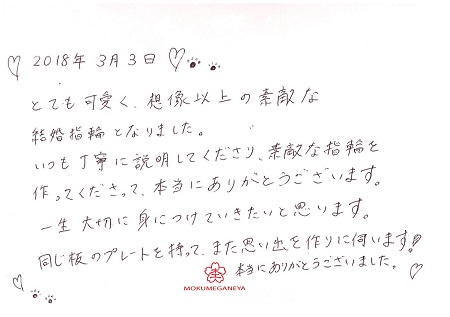 2018年 3月3日
とても可愛く、想像以上の素敵な
結婚指輪となりました。
いつも丁寧に説明してくださり、素敵な指輪を
作ってくださって、本当にありがとうございます。
一生大切に身につけていきたいと思います。
同じ板のプレートを持って、また思い出を作りに伺います!
本当にありがとうございました。
MOKUMEGANEYA